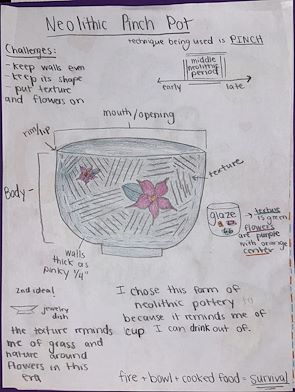 Neolithic Pinch Pot
technique being used is PINCH
Challenges:
- keep walls even
- keep its shape
- put texture
and flowers on
middle
neolithic
period
early
late
mouth/opening
rim/lip
texture
Body-
glaze
→ texture
is green
flowers
are purple
with orange
center
walls
thick as
pinky 1/4"
2nd ideal
jewelry
dish
the texture reminds
me of grass and
nature around
flowers in this
era
I chose this form of
neolithic pottery
because it reminds me of
cup I can drink out of.
fire + bowl + cooked food = survival